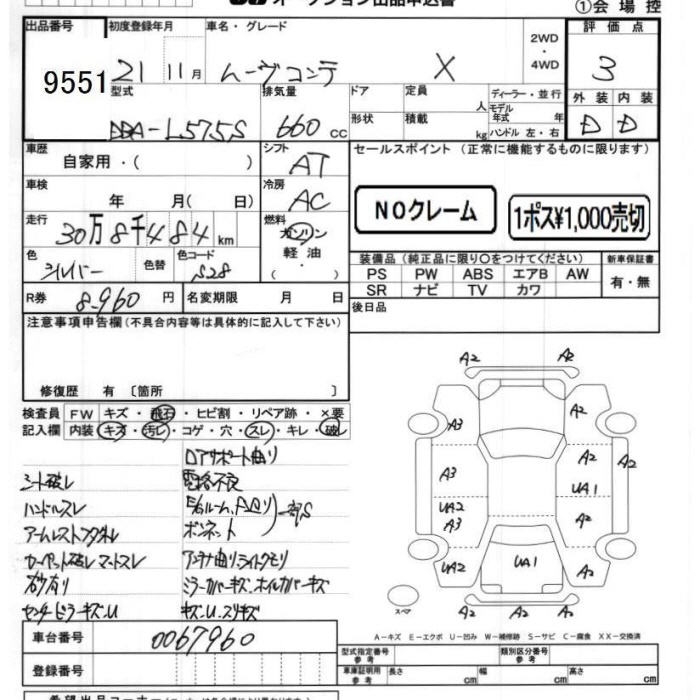 オークション出品申込書
①会場控
出品番号 初度登録年月 車名・グレード 2WD・4WD 評価点
9551 21 11月 ムーヴコンテ X 3
型式 排気量 ドア 定員 人 ディーラー・並行 外装 内装
DBA-L575S 660 cc 形状 積載 kg モデル年式 年 ハンドル 左・右 D D
車歴 自家用・( ) シフト AT セールスポイント (正常に機能するものに限ります)
車検 年 月(日) 冷房 AC NOクレーム 1ポス¥1,000売切
走行 30万8千484km 燃料 ガソリン
軽油・( )
色 シルバー 色替 色コード S28
装備品 (純正品に限り○をつけてください) 新車保証書
PS PW ABS エアB AW 有・無
SR ナビ TV カワ
R券 8.960円 名変期限 月 日 後日品
注意事項申告欄(不具合内容等は具体的に記入して下さい)
修復歴 有 〔箇所 〕
検査員 FW キズ・飛石・ヒビ割・リペア跡・×要
記入欄 内装 キズ・汚レ・コゲ・穴・スレ・キレ・破レ
シート破レ
ハンドルスレ
カーペット破レ マットスレ
砂有リ
センターピラーキズ.U
電格不良
ボンネット
アンテナ曲リ ライトクモリ
ミラーカバーキズ.ホイルカバーキズ
キズ.U.スリキズ
A2 A2
A3 A2
A3 A2 A2
UA2 A3 UA1 A2
UA2 UA1 A2
A2 A2
スペア
A-キズ E-エクボ U-凹み W-補修跡 S-サビ C-腐食 XX-交換済
車台番号 0067960
登録番号
型式指定番号 参考 類別区分番号 参考
車庫証明用 参考 長さ cm 幅 cm 高さ cm
希望出品コーナー